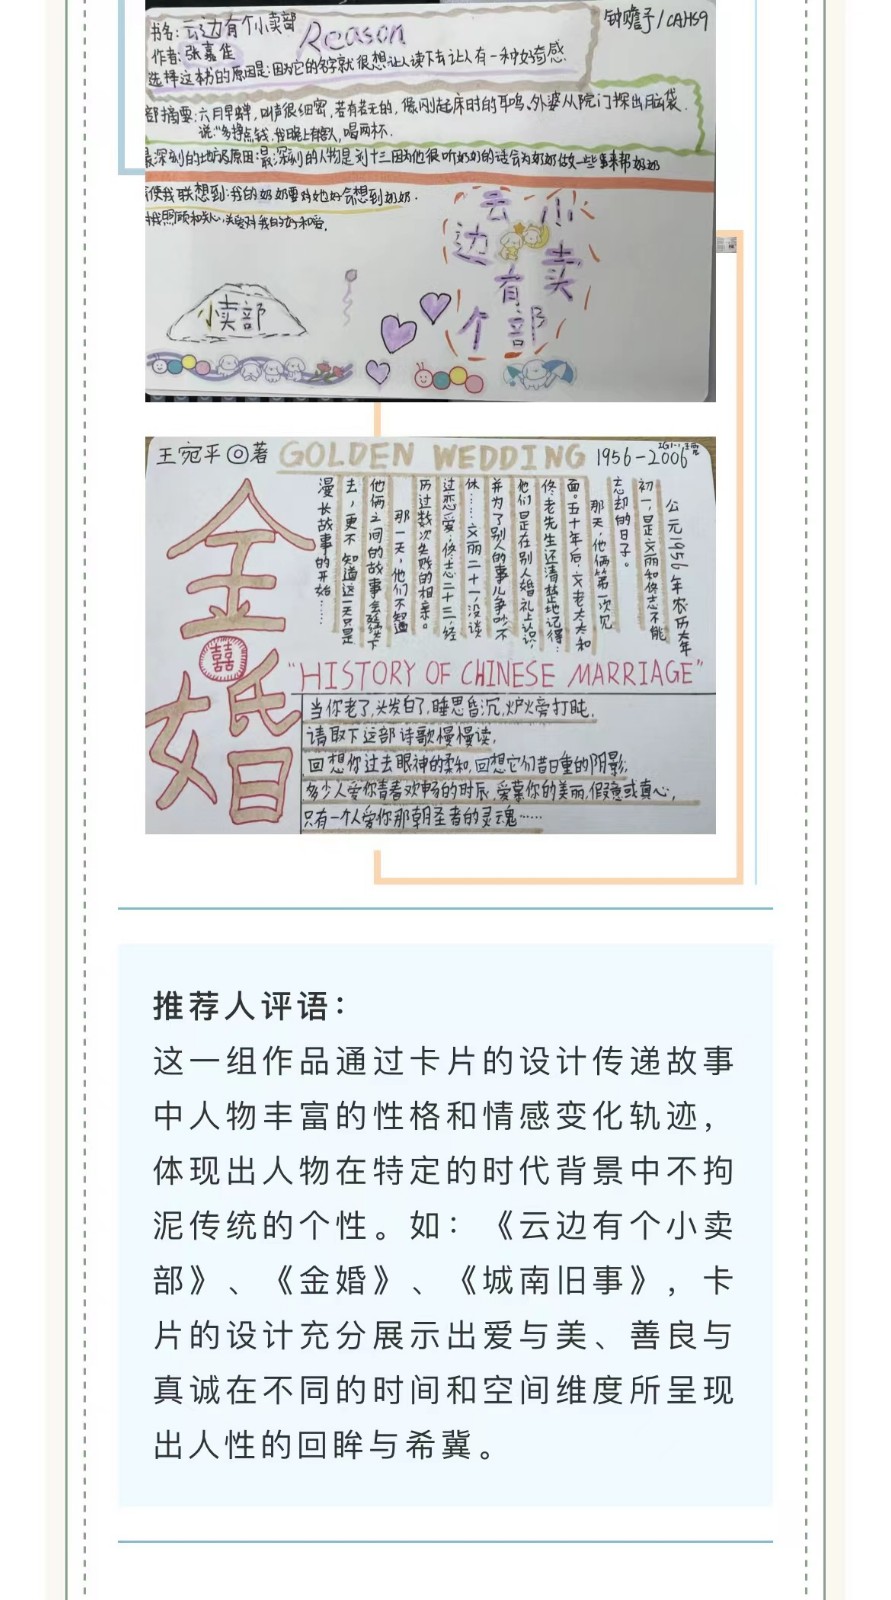 书名:云边有个小卖部
Reason
钟赡予/CAHS9
作者:张嘉佳
选择这本书的原因是:因为它的名字就很想让人读下去让人有一种好奇感
部摘要:六月早蝉,叫声很细密,若有若无的,像刚起床时的耳鸣、外婆从院门探出脑袋.
说:"多挣点钱,我晚上有客人,喝两杯.
最深刻的人物及原因:最深刻的人物是刘十三因为他很听奶奶的话会为奶奶做一些事来帮奶奶
使我联想到:我的奶奶要对她好会想到奶奶.
云边有个小卖部
小卖部
王宛平◎著
GOLDEN WEDDING
1956-2006
金婚
囍
公元1956年农历大年
初一,是文丽和佟志不能
忘却的日子。
那天,他俩第一次见
面。五十年后,文老太太和
佟老先生还清楚地记得:
他们是在别人婚礼上认识,
并为了别人的事儿争吵不
休……文丽二十一,没谈
过恋爱;佟志二十三,经
历过数次失败的相亲。
那一天,他们不知道
他俩之间的故事会延续下
去,更不知道这一天只是
漫长故事的开始……
"HISTORY OF CHINESE MARRIAGE"
当你老了,头发白了,睡思昏沉,炉火旁打盹,
请取下这部诗歌慢慢读,
回想你过去眼神的柔和,回想它们昔日重的阴影;
多少人爱你青春欢畅的时辰,爱慕你的美丽,假意或真心,
只有一个人爱你那朝圣者的灵魂……
推荐人评语:
这一组作品通过卡片的设计传递故事
中人物丰富的性格和情感变化轨迹,
体现出人物在特定的时代背景中不拘
泥传统的个性。如:《云边有个小卖
部》、《金婚》、《城南旧事》,卡
片的设计充分展示出爱与美、善良与
真诚在不同的时间和空间维度所呈现
出人性的回眸与希冀。